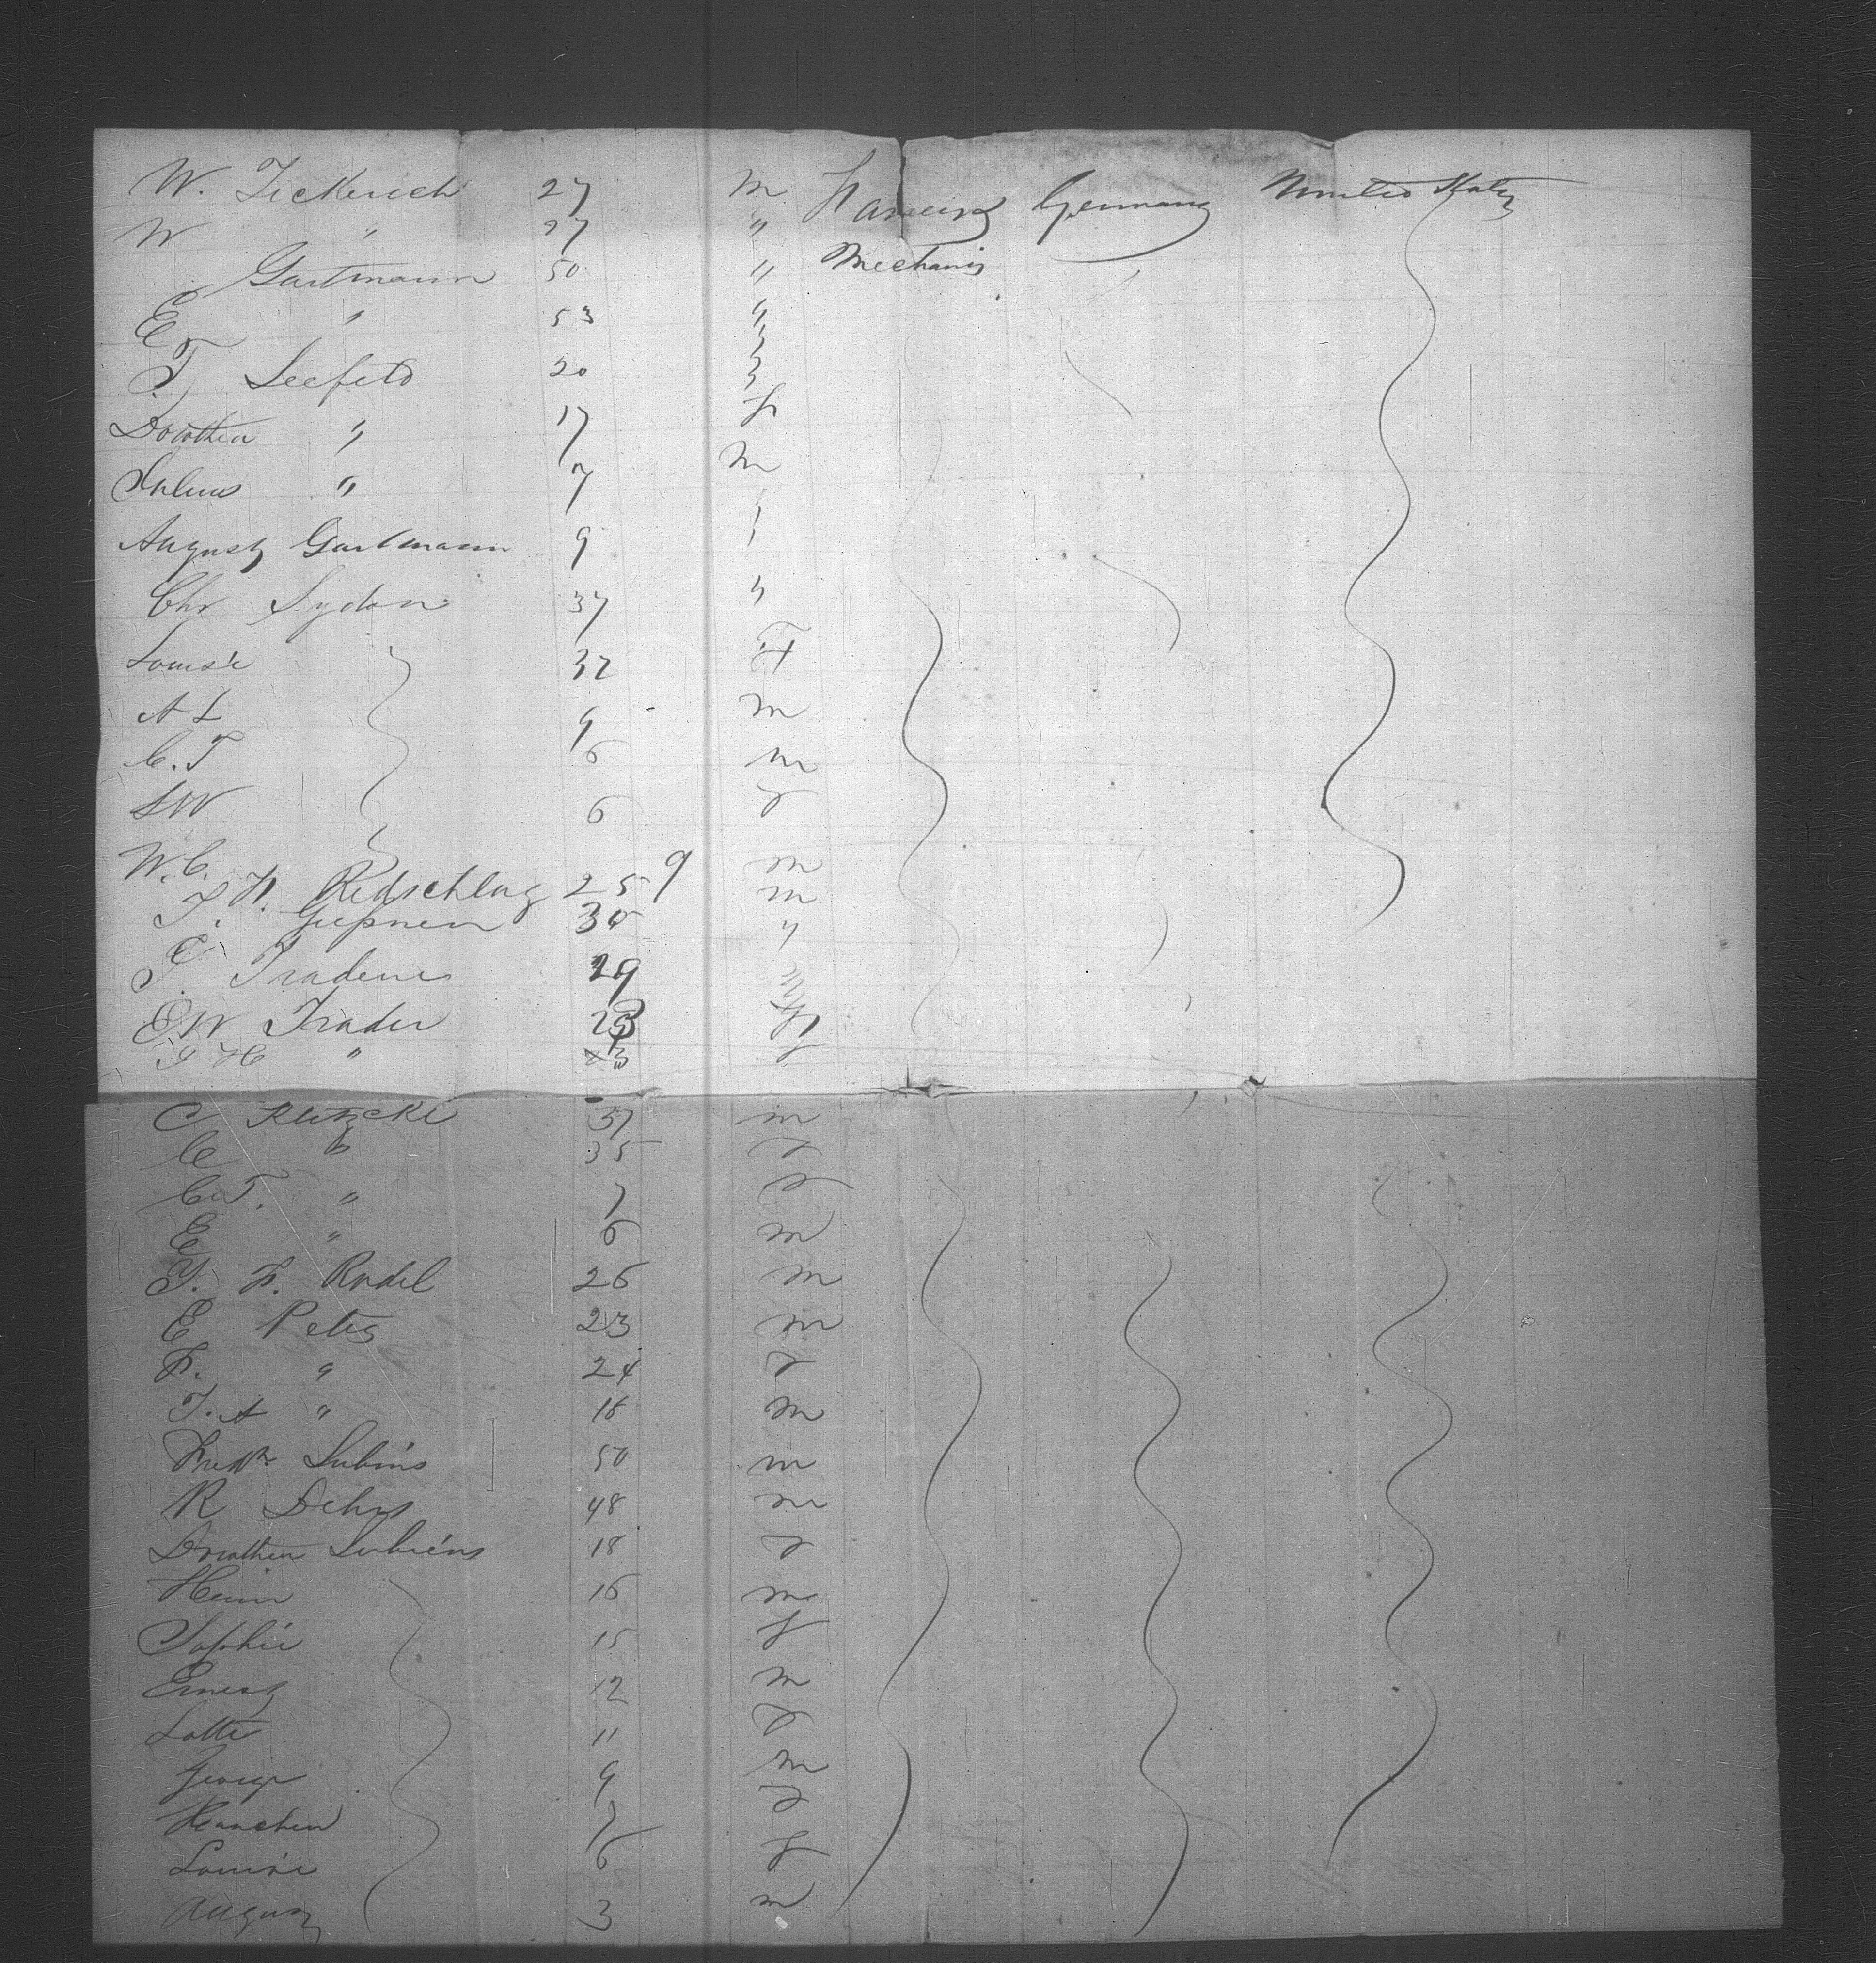 W. Tickerich 27 m Farming Germany United States
W " 27 "
Gartmann 50 " Mechanic
E " 53 "
T. Seefeld 20 "
Dorothea " 17 F
Julius " 7 m
August Gartmann 9 "
Chr Sydon 37 "
Louise 32 F
A L 9 m
C. T 6 m
LW 6 F
W. C. 9 m
F. Redschlag 25 m
T. 30 "
T. Tradenes 29
E W Trader
" F
C Kletzcke 37 m
C " 35 F
C. T. " 7 F
E " 6 m
T. F. Radel 26 m
E Peters 23 m
F. " 24 F
T. A " 18 m
Lubins 50 m
R Dehrs 48 m
Dorothea Lubins 18 F
Heinr 16 m
Sophie 15 F
Ernest 12 m
Lotte 11 F
George 9 m
Hannchen 7 F
Louise 6 F
August 3 m